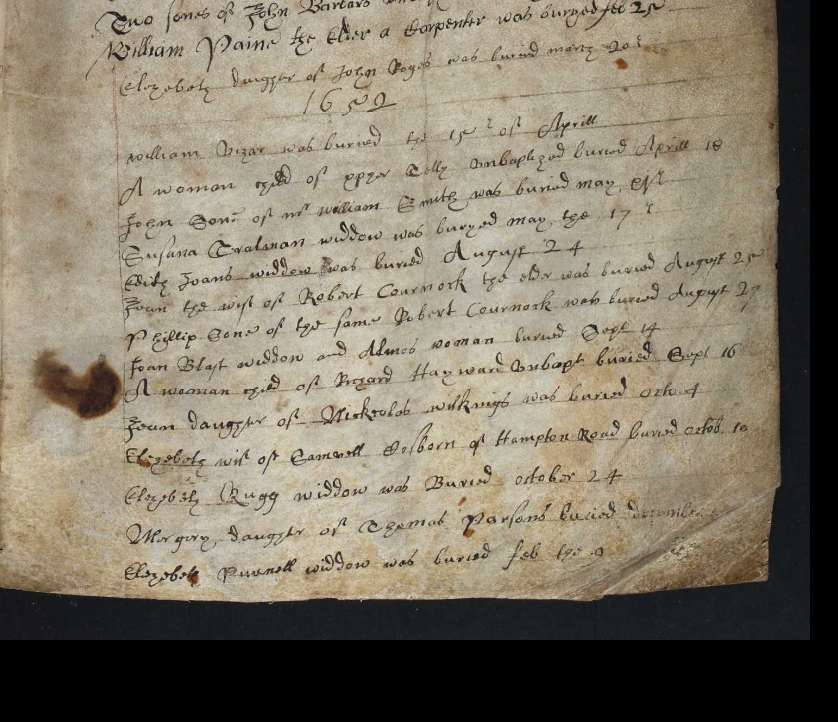 Two sones of John
William Paine the Elder a Carpenter was buryed feb 25
Elezebeth daughter of John Roges was buried march 20
1652
William Vizar was buried the 15 of Aprill
A woman child of Telly Unbaptized buried Aprill 18
John Sone of mr William Smith was buried may
Susana Tralman widdow was buryed may the 17
Edith Joans widdow was buried August 24
Jean the wife of Robert Cournock the elder was buried August 25
Phillip Sone of the same Robert Cournock was buried August
Joan Blast widdow and Almos woman buried Sept 14
A woman child of Richard Hayward Unbapt buried Sept 16
Jean daughter of Nickcolas wilkings was buried octo 4
Elezebeth wife of Samuell Osborn of Hampton Road buried octob. 10
Elezebeth Rugg widdow was Buried october 24
Mergery daughter of Thomas Parsons buried december
Elezebeth Purnell widdow was buried feb the